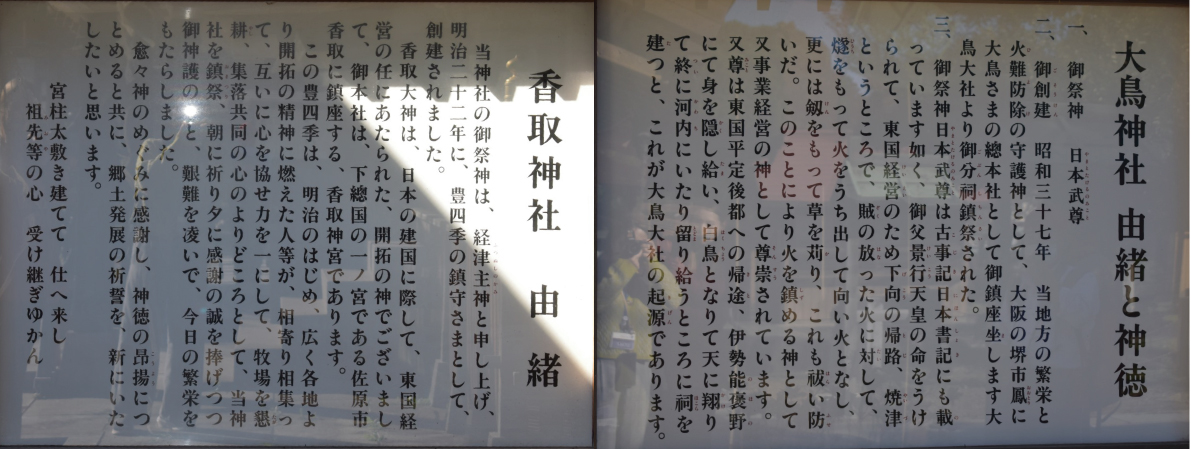 大鳥神社 由緒と神徳
一、御祭神 日本武尊
二、御創建 昭和三十七年 当地方の繁栄と
火難防除の守護神として、大阪の堺市鳳に
大鳥さまの總本社として御鎮座坐します大
鳥大社より御分祠鎮祭された。
三、御祭神日本武尊は古事記日本書記にも載
っています如く、御父景行天皇の命をうけ
られて、東国経営のため下向の帰路、焼津
というところで、賊の放った火に対して、
燧をもって火をうち出して向い火となし、
更には剱をもって草を苅り、これも祓い防
いだ。このことにより火を鎮める神として
又事業経営の神として尊崇されています。
又尊は東国平定後都への帰途、伊勢能褒野
にて身を隠し給い、白鳥となりて天に翔り
て終に河内にいたり留り給うところに祠を
建つと、これが大鳥大社の起源であります。
香取神社 由緒
当神社の御祭神は、経津主神と申し上げ、
明治二十二年に、豊四季の鎮守さまとして、
創建されました。
香取大神は、日本の建国に際して、東国経
営の任にあたられた、開拓の神でございまし
て、御本社は、下總国の一ノ宮である佐原市
香取に鎮座する、香取神宮であります。
この豊四季は、明治のはじめ、広く各地よ
り開拓の精神に燃えた人等が、相寄り相集っ
て、互いに心を協せ力を一にして、牧場を懇
耕、集落共同の心のよりどころとして、当神
社を鎮祭、朝に祈り夕に感謝の誠を捧げつつ
御神護のもと、艱難を凌いで、今日の繁栄を
もたらしました。
愈々神のめぐみに感謝し、神徳の昂揚につ
とめると共に、郷土発展の祈誓を、新にいた
したいと思います。
宮柱太敷き建てて 仕へ来し
祖先等の心 受け継ぎゆかん